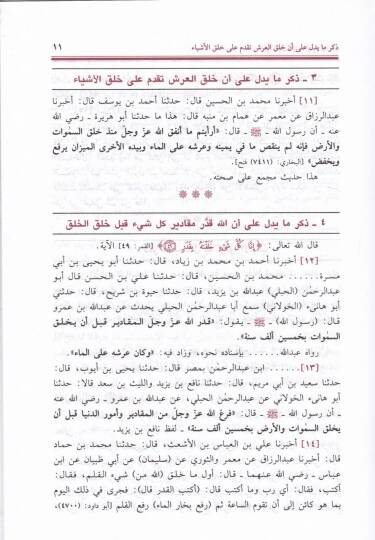 ذكر ما يدل على أن خلق العرش تقدم على خلق الأشياء ١١
٣ ـ ذكر ما يدل على أن خلق العرش تقدم على خلق الأشياء
[١١] أخبرنا محمد بن الحسين قال: حدثنا أحمد بن يوسف قال: أخبرنا
عبدالرزاق عن معمر عن همام بن منبه قال: هذا ما حدثنا أبو هريرة ـ رضي الله
عنه ـ أن رسول الله ـ ﷺ ـ قال: «أرأيتم ما أنفق الله عزّ وجلّ منذ خلق السمٰوات
والأرض فإنه لم ينتقص ما في يمينه وعرشه على الماء وبيده الأخرى الميزان يرفع
ويخفض» [البخاري: (٧٤١١) فتح].
هذا حديث مجمع على صحته.
* * *
٤ ـ ذكر ما يدل على أن الله قدَّر مقادير كل شيء قبل خلق الخلق
قال الله تعالى: ﴿إِنَّا كُلَّ شَيْءٍ خَلَقْنَاهُ بِقَدَرٍ ﴾ [القمر: ٤٩] الآية.
[١٢] أخبرنا أحمد بن محمد بن زياد، قال: حدثنا أبو يحيى بن أبي
مسرة...... محمد بن الحسين، قال: حدثنا علي بن الحسن قال أبو
عبدالرحمٰن (الحبلي) عبدالله بن يزيد، قال: حدثنا حيوة بن شريح، قال: حدثني
أبو هانىء (الخولاني) سمع أبا عبدالرحمٰن الحبلي يحدث عن عبدالله بن عمرو
قال: (رسول الله) ـ ﷺ ـ يقول: «قدر الله عزّ وجلّ المقادير قبل أن يخلق
السمٰوات بخمسين ألف سنة».
رواه عبدالله....... بإسناده نحوه، وزاد فيه: «وكان عرشه على الماء».
[١٣] ...... ابن عبدالرحمٰن بمصر قال: حدثنا يحيى بن أيوب، قال:
حدثنا سعيد بن أبي مريم، قال: حدثنا نافع بن يزيد والليث بن سعد قالا: حدثنا
أبو هانىء الخولاني عن عبدالرحمٰن الحبلي، عن عبدالله بن عمرو ـ رضي الله عنه
ـ أن رسول الله ـ ﷺ ـ قال: «فرغ الله عزّ وجلّ من المقادير وأمور الدنيا قبل أن
يخلق السمٰوات والأرض بخمسين ألف سنة». ـ لفظ نافع بن يزيد.
[١٤] أخبرنا علي بن العباس بن الأشعث، قال: حدثنا محمد بن حماد
قال: أخبرنا عبدالرزاق عن معمر والثوري عن (سليمان) عن أبي ظبيان عن ابن
عباس ـ رضي الله عنهما ـ قال: أول ما خلق (الله من) شيء القلم، فقال:
أكتب، فقال: أي رب وما أكتب قال: أكتب القدر قال: فجرى في ذلك اليوم
بما هو كائن إلى أن تقوم الساعة ثم (رفع بخار الماء) رفع القلم [أبو داود: (٤٧٠٠)،